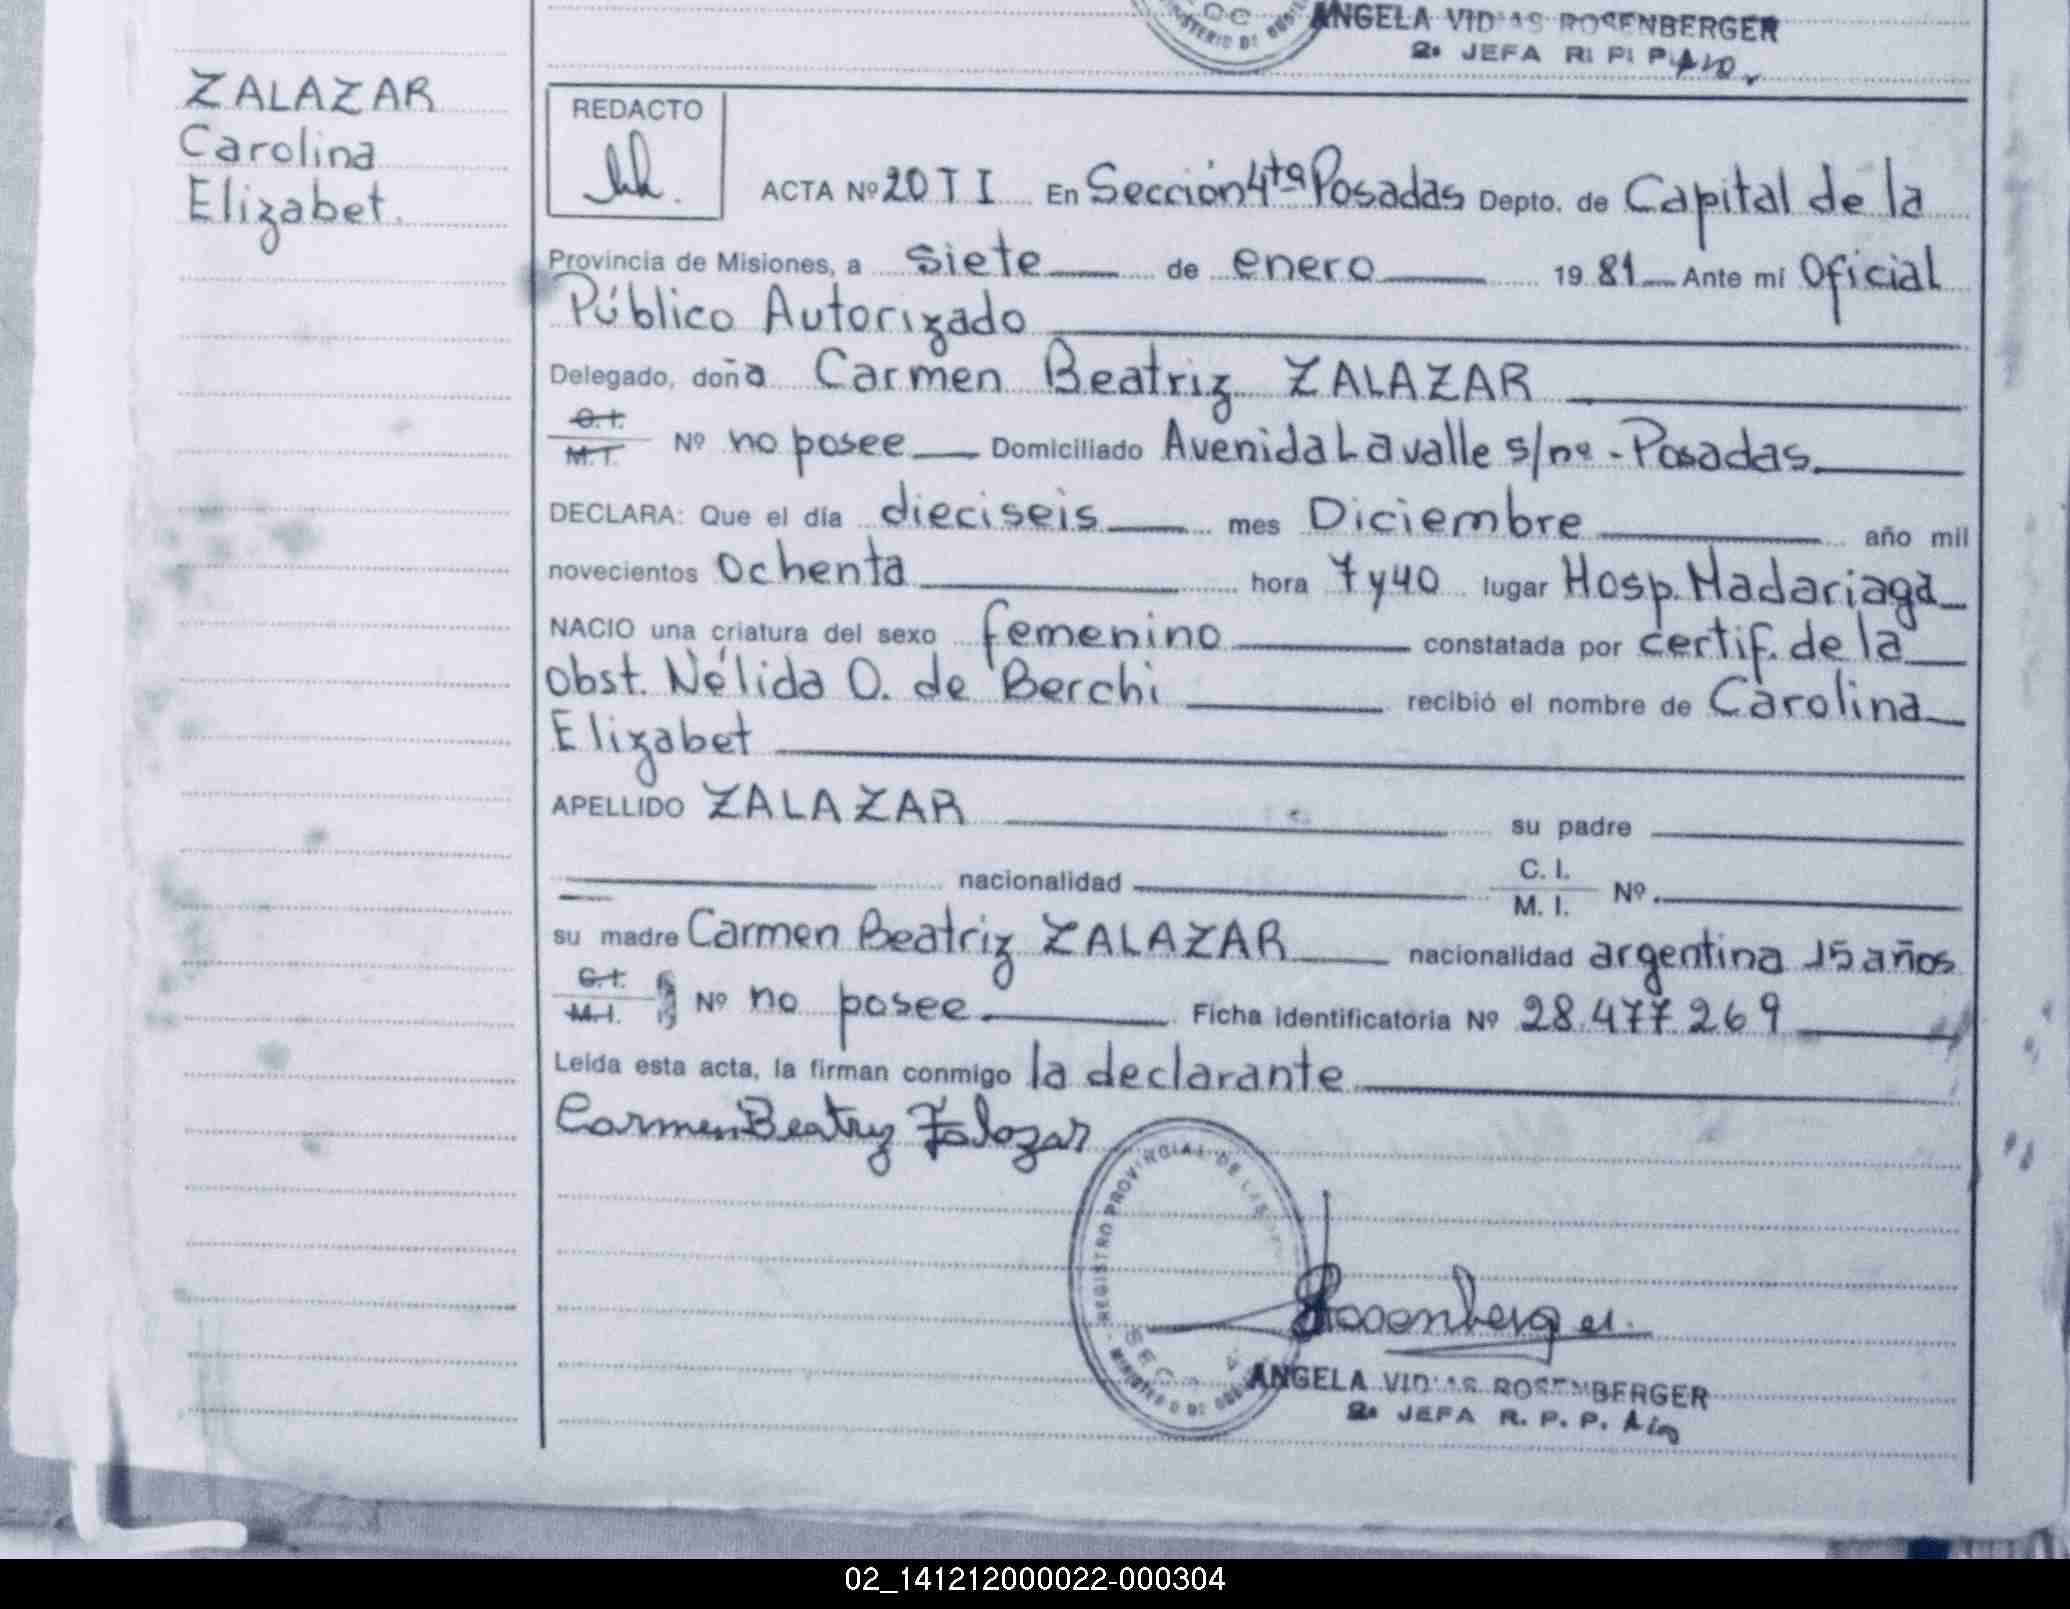 ANGELA VIDAS ROSENBERGER
2a JEFA R. P. P.
ZALAZAR
Carolina
Elizabet.
REDACTO
ACTA Nº 20 T I En Sección 4ta Posadas Depto. de Capital de la
Provincia de Misiones, a siete de enero 1981 Ante mí Oficial
Público Autorizado
Delegado, doña Carmen Beatriz ZALAZAR
C.I. M.I. Nº no posee Domiciliado Avenida Lavalle s/nº - Posadas
DECLARA: Que el día dieciseis mes Diciembre año mil
novecientos ochenta hora 7 y 40 lugar Hosp. Madariaga
NACIO una criatura del sexo femenino constatada por certif. de la
obst. Nélida O. de Berchi recibió el nombre de Carolina
Elizabet
APELLIDO ZALAZAR su padre
nacionalidad C. I. M. I. Nº
su madre Carmen Beatriz ZALAZAR nacionalidad argentina 15 años
C.I. M.I. Nº no posee Ficha identificatoria Nº 28.477.269
Leída esta acta, la firman conmigo la declarante
Carmen Beatriz Zalazar
REGISTRO PROVINCIAL DE LAS
Rosenberger
ANGELA VIDAS ROSENBERGER
2a JEFA R. P. P.
02_141212000022-000304